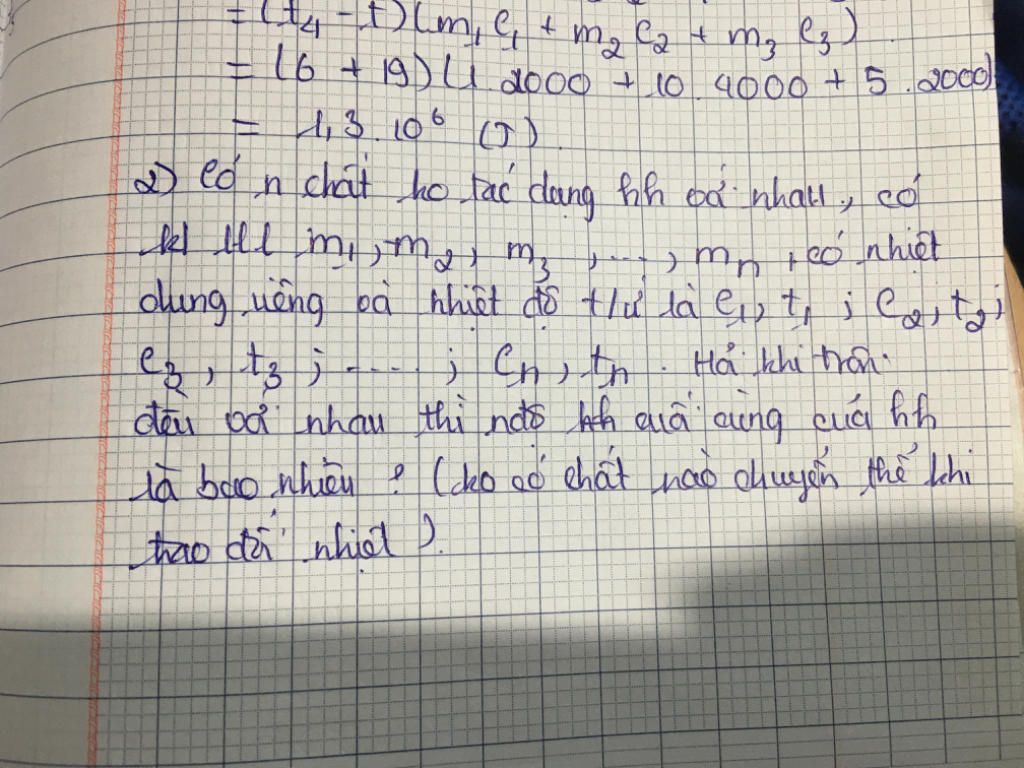 = (t4 - t) (m1c1 + m2c2 + m3c3)
= (6 + 19) (1.2000 + 10.4000 + 5.2000)
= 1,3.10⁶ (J)
2) Có n chất ko tác dụng hh với nhau, có
kl lll m1, m2, m3, ..., mn, có nhiệt
dung riêng và nhiệt độ t/ư là c1, t1; c2, t2;
c3, t3; ....; cn, tn. Hỏi khi trộn
đều với nhau thì nđộ cuối cùng của hh
là bao nhiêu? (ko có chất nào chuyển thể khi
trao đổi nhiệt).